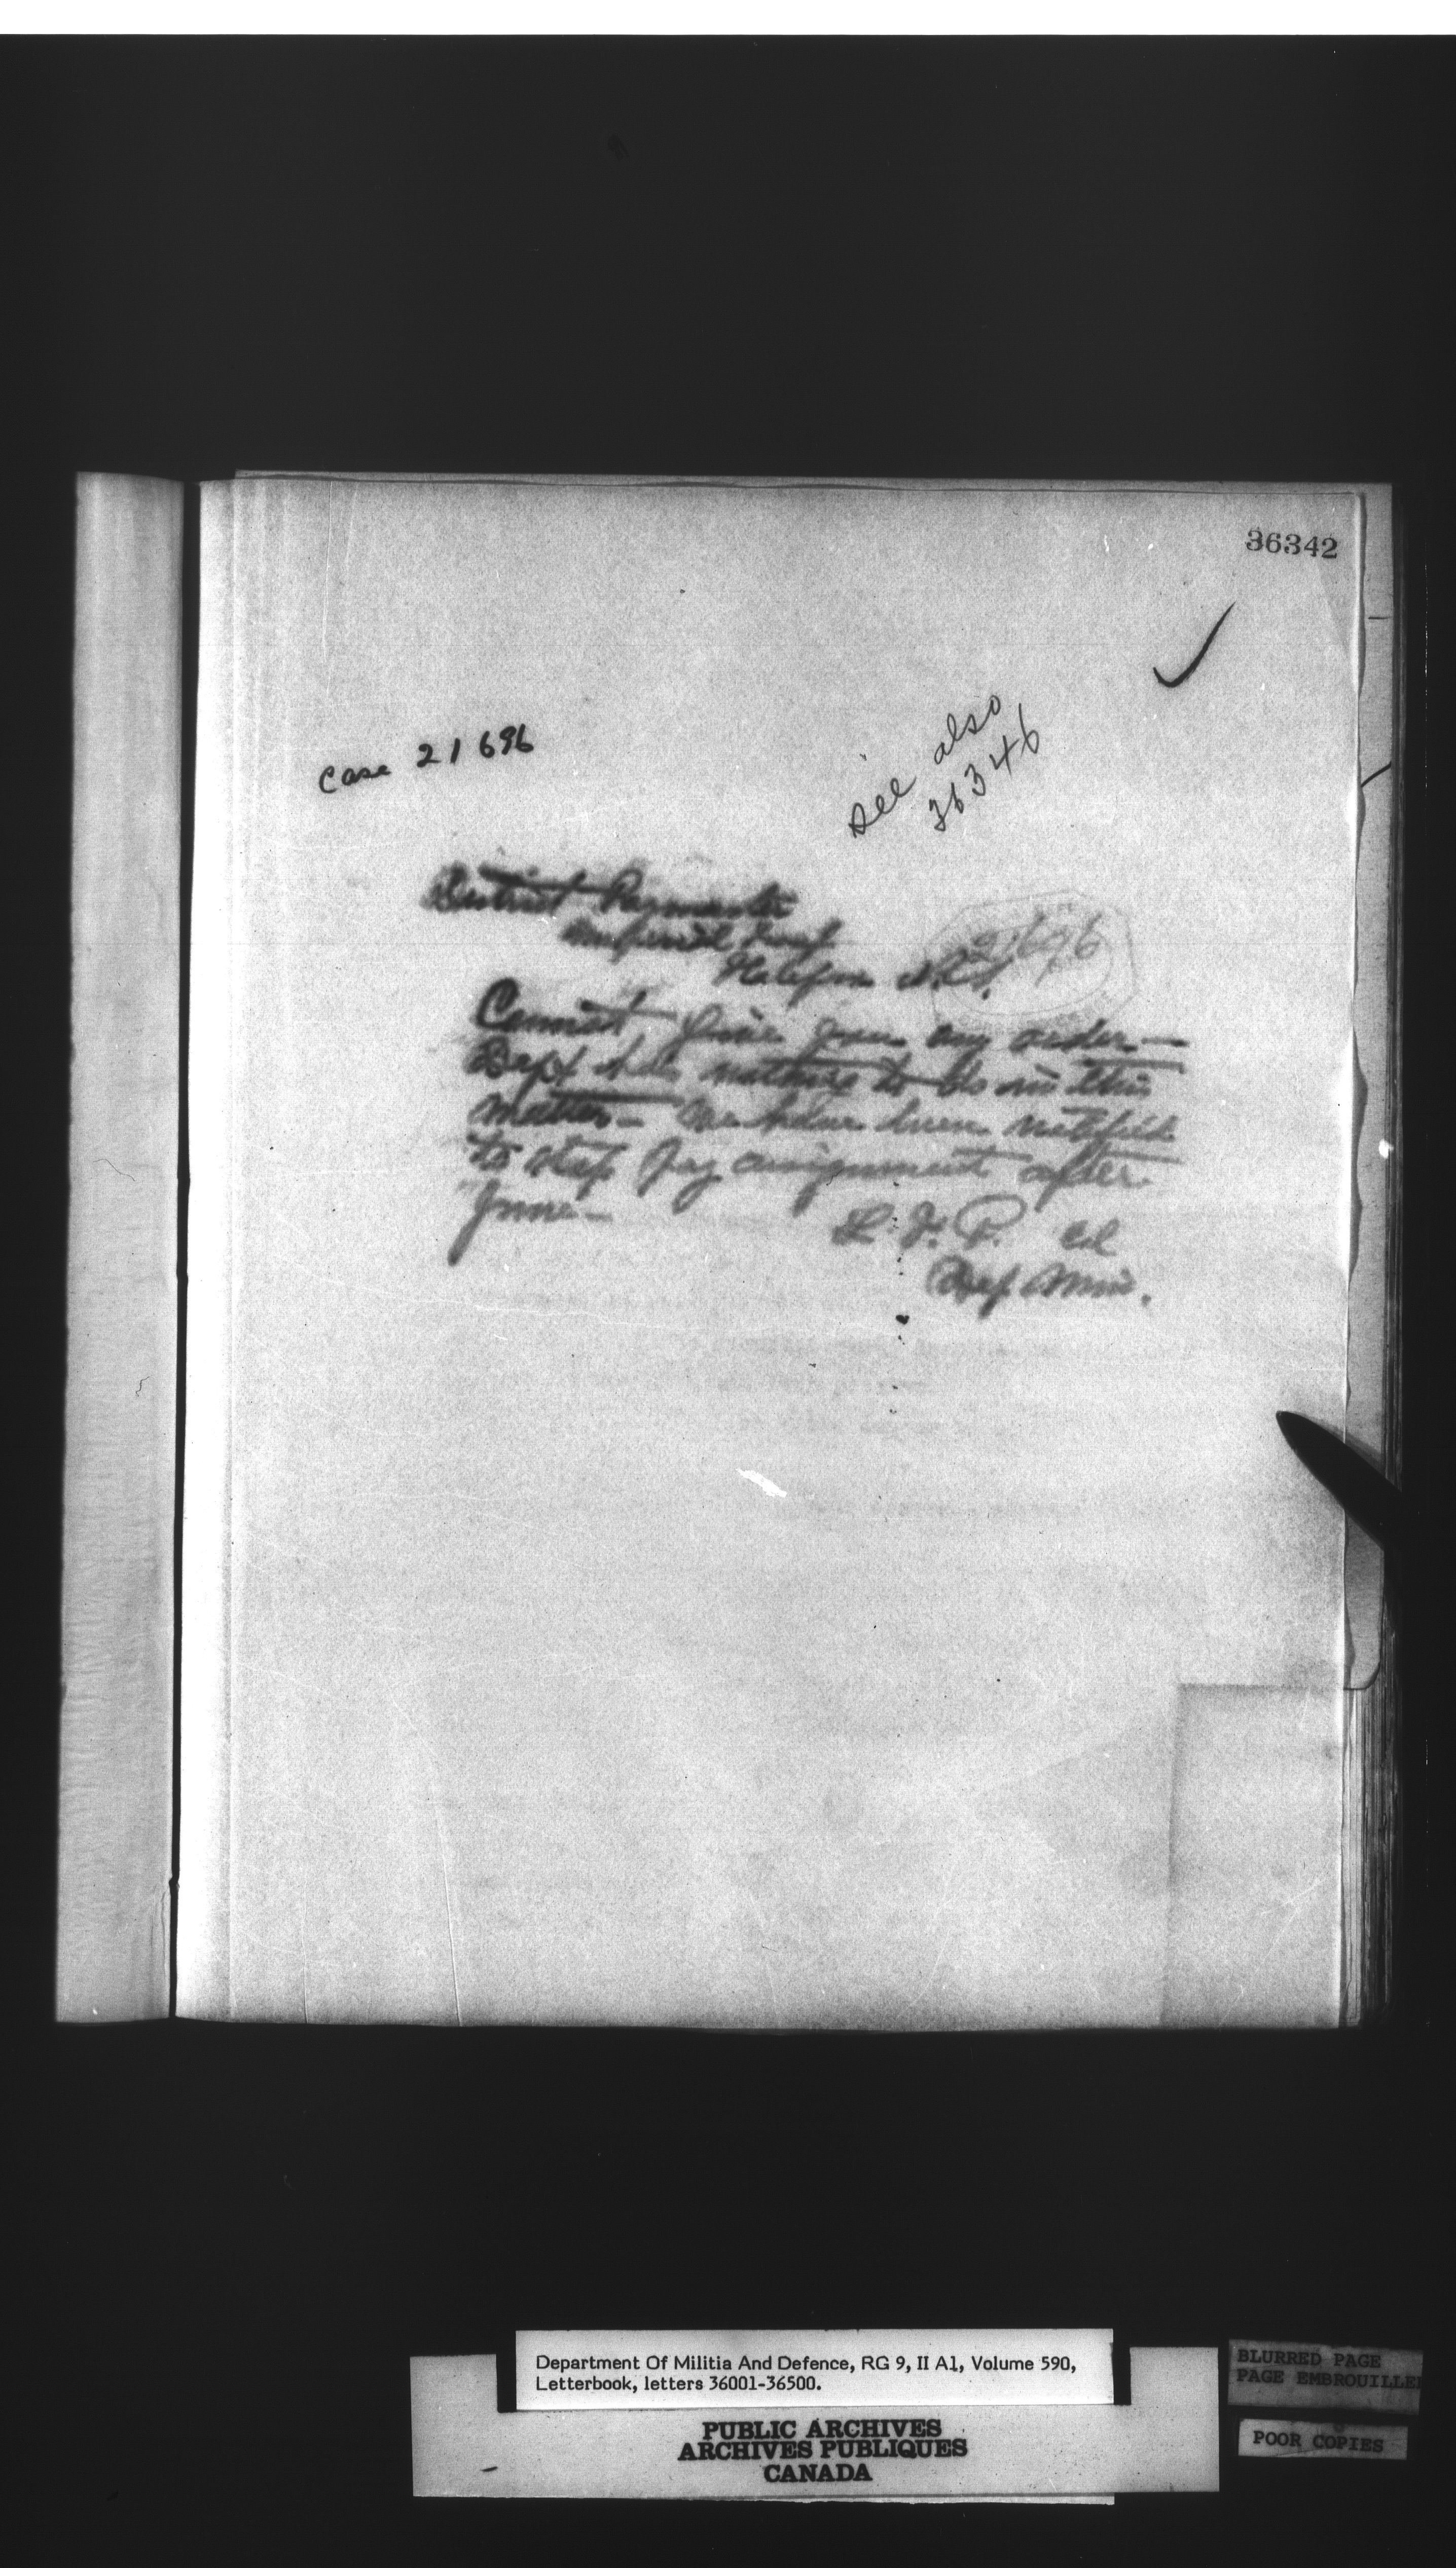 36342
see also
36346
Case 21696
District Paymaster
Imperial
Halifax N.S.
21696
Cannot give you any order—
Dept has nothing to do in this
matter— We have been notified
to stop pay assignment after
June—
L. F. P. Col
Dep Min.
Department Of Militia And Defence, RG 9, II A1, Volume 590,
Letterbook, letters 36001-36500.
PUBLIC ARCHIVES
ARCHIVES PUBLIQUES
CANADA
BLURRED PAGE
PAGE EMBROUILLE
POOR COPIES